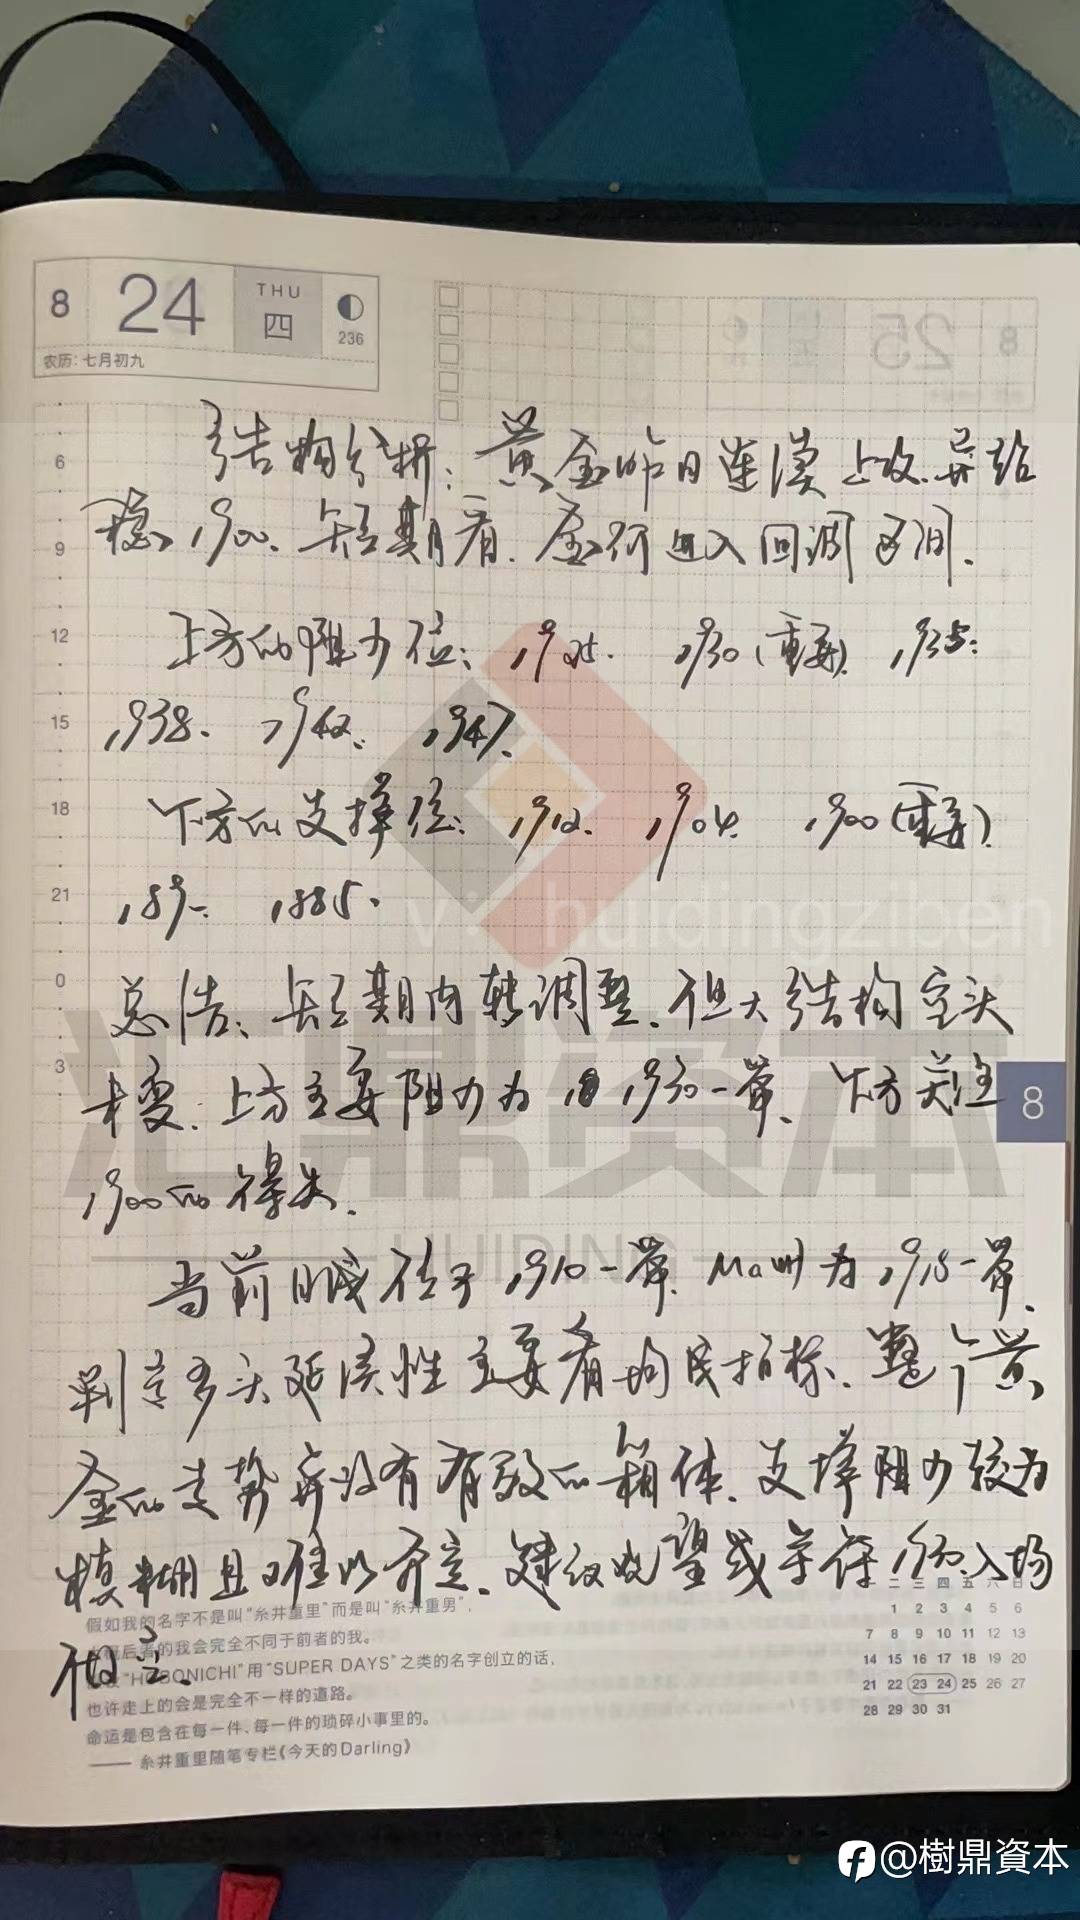 8
24
THU
四
236
农历：七月初九
25
8
结构分析：黄金昨日连续上攻并站
稳1900、短期看、金价进入回调区间.
上方的阻力位：1925. 1930(重要) 1935.
1938. 1942. 1947.
下方的支撑位：1912. 1904. 1900(重要).
1885.
v: huidingziben
总结：短期内转调整、但大结构空头
未变. 上方主要阻力为 1930一带、下方关注
1900的得失.
汇鼎资本
HUIDING
当前 位于1910一带 为1915一带.
判定多头延续性主要看均线指标、整个黄
金的走势并没有有效的箱体、支撑阻力较为
模糊且难以界定、建议观望或等待 入场
做空.
6
9
12
15
18
21
0
3
8
假如我的名字不是叫“糸井重里”而是叫“糸井重男”，
后者的我会完全不同于前者的我。
“HOBONICHI”用“SUPER DAYS”之类的名字创立的话，
也许走上的会是完全不一样的道路。
命运是包含在每一件、每一件的琐碎小事里的。
—— 糸井重里随笔专栏《今天的Darling》
二 三 四 五 六 日
1 2 3 4 5 6
7 8 9 10 11 12 13
14 15 16 17 18 19 20
21 22 23 24 25 26 27
28 29 30 31
@樹鼎資本